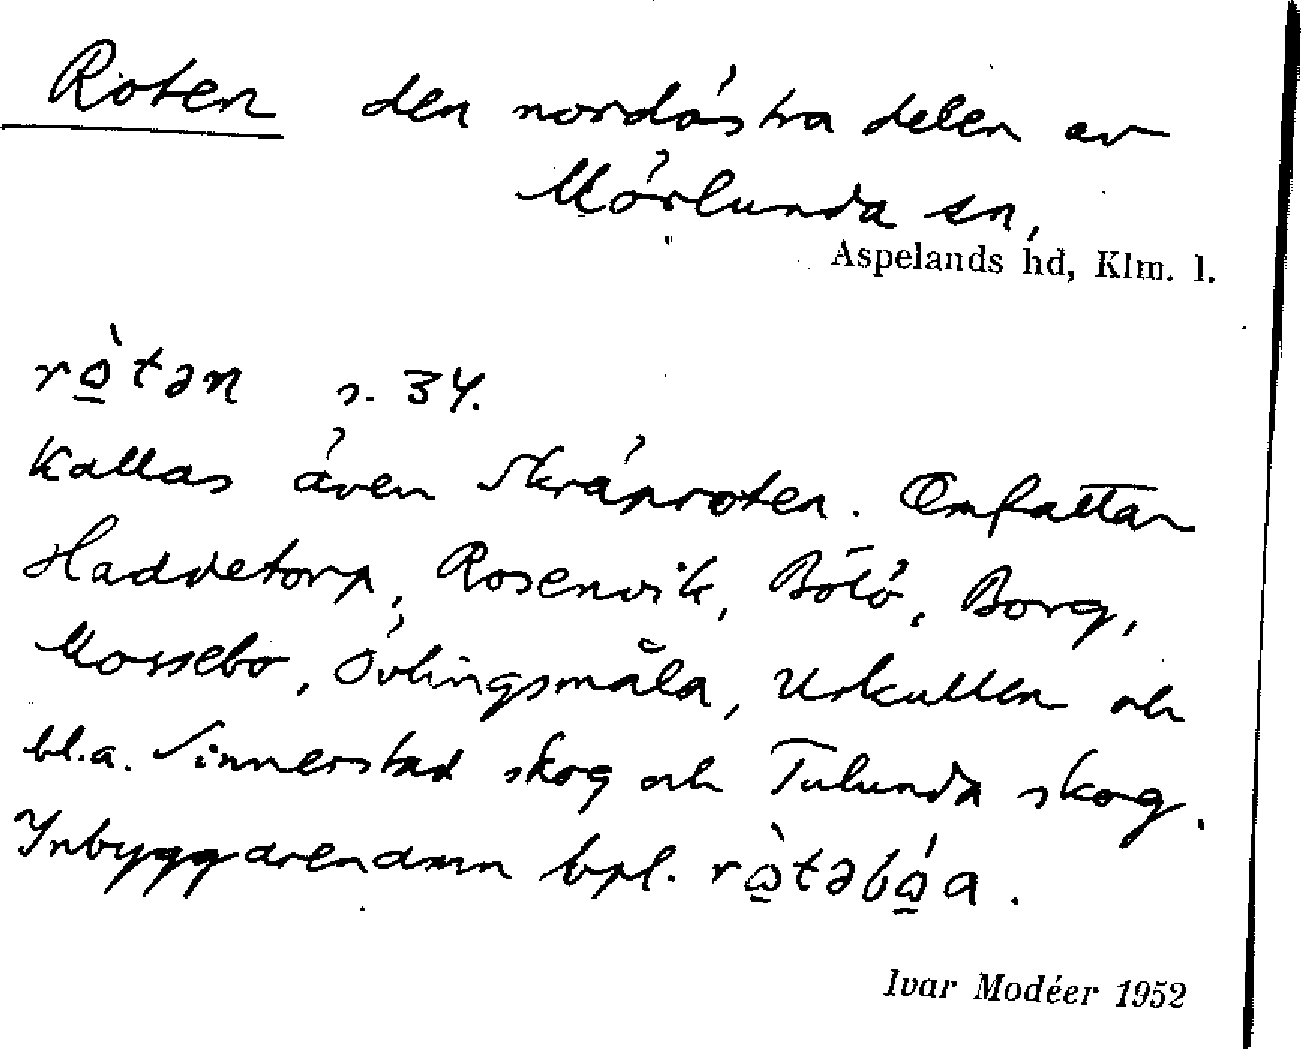 Roten den nordöstra delen av
Mörlunda sn,
Aspelands hd, Klm. l.
rò̲tən s. 34.
Kallas även Skräproten. Omfattar
Haddetorp, Rosenvik, Bölö, Borg,
Mossebo, Övlingsmåla, Urkullen och
bl.a. Sinnerstad skog och Tulunda skog.
Inbyggarenamn bpl. rò̲təbó̲a.
Ivar Modéer 1952